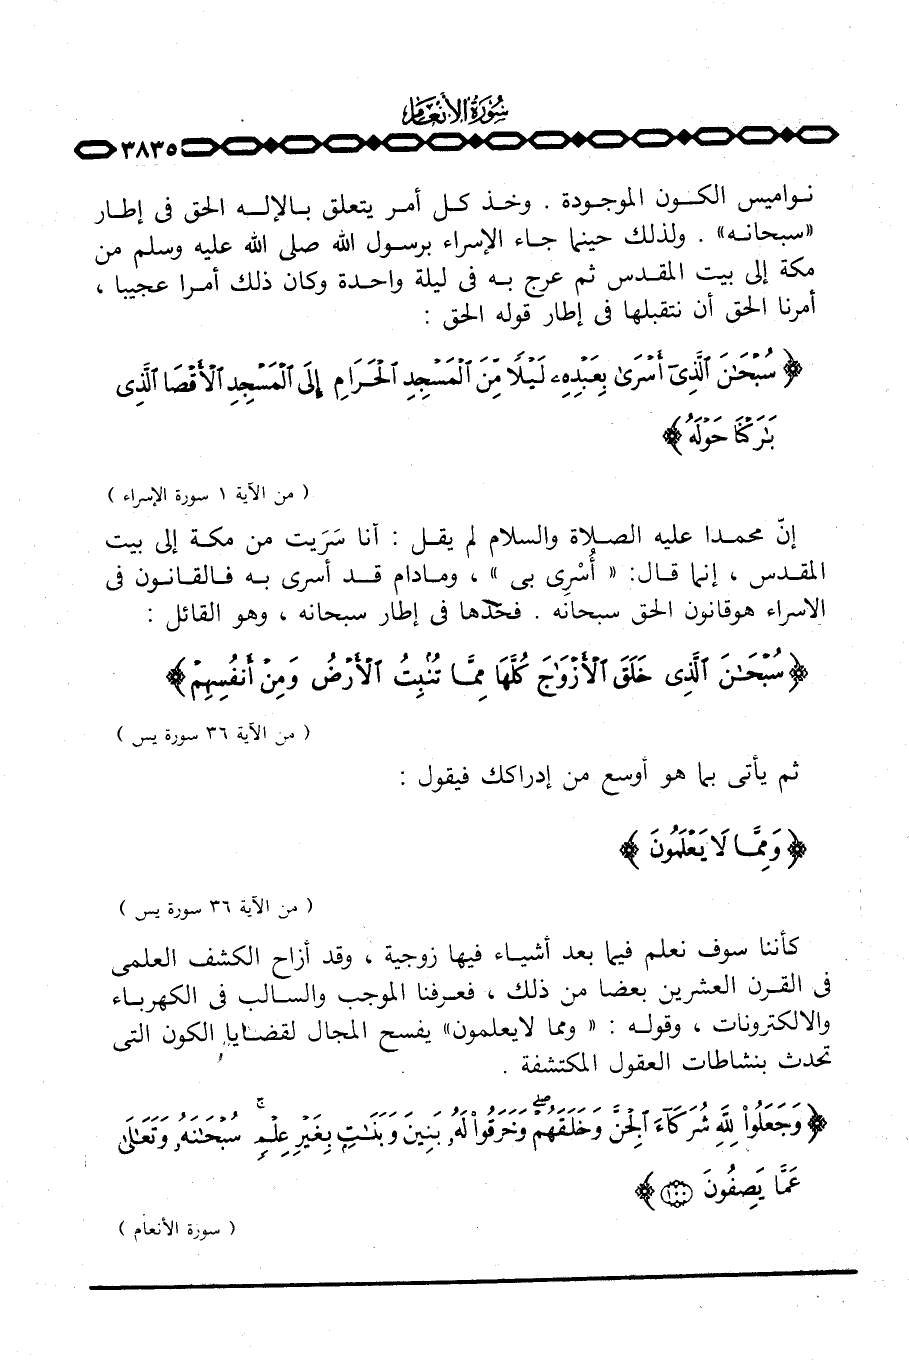 سورة الأنعام
٣٨٣٥
نواميس الكون الموجودة . وخذ كل أمر يتعلق بالإله الحق فى إطار
«سبحانه» . ولذلك حينما جاء الإسراء برسول الله صلى الله عليه وسلم من
مكة إلى بيت المقدس ثم عرج به فى ليلة واحدة وكان ذلك أمرا عجيبا ،
أمرنا الحق أن نتقبلها فى إطار قوله الحق :
﴿ سُبْحَـٰنَ ٱلَّذِىٓ أَسْرَىٰ بِعَبْدِهِۦ لَيْلًا مِّنَ ٱلْمَسْجِدِ ٱلْحَرَامِ إِلَى ٱلْمَسْجِدِ ٱلْأَقْصَا ٱلَّذِى
بَـٰرَكْنَا حَوْلَهُۥ ﴾
( من الآية ١ سورة الإسراء )
إنّ محمدا عليه الصلاة والسلام لم يقل : أنا سَرَيت من مكة إلى بيت
المقدس ، إنما قال: « أُسْرِى بى » ، ومادام قد أسرى به فالقانون فى
الاسراء هوقانون الحق سبحانه . فخذها فى إطار سبحانه ، وهو القائل :
﴿ سُبْحَـٰنَ ٱلَّذِى خَلَقَ ٱلْأَزْوَٰجَ كُلَّهَا مِمَّا تُنۢبِتُ ٱلْأَرْضُ وَمِنْ أَنفُسِهِمْ ﴾
( من الآية ٣٦ سورة يس )
ثم يأتى بما هو أوسع من إدراكك فيقول :
﴿ وَمِمَّا لَا يَعْلَمُونَ ﴾
( من الآية ٣٦ سورة يس )
كأننا سوف نعلم فيما بعد أشياء فيها زوجية ، وقد أزاح الكشف العلمى
فى القرن العشرين بعضا من ذلك ، فعرفنا الموجب والسالب فى الكهرباء
والالكترونات ، وقوله : « ومما لايعلمون» يفسح المجال لقضايا الكون التى
تحدث بنشاطات العقول المكتشفة .
﴿ وَجَعَلُوا۟ لِلَّهِ شُرَكَآءَ ٱلْجِنَّ وَخَلَقَهُمْ ۖ وَخَرَقُوا۟ لَهُۥ بَنِينَ وَبَنَـٰتٍۭ بِغَيْرِ عِلْمٍ ۚ سُبْحَـٰنَهُۥ وَتَعَـٰلَىٰ
عَمَّا يَصِفُونَ ١٠٠ ﴾
( سورة الأنعام )